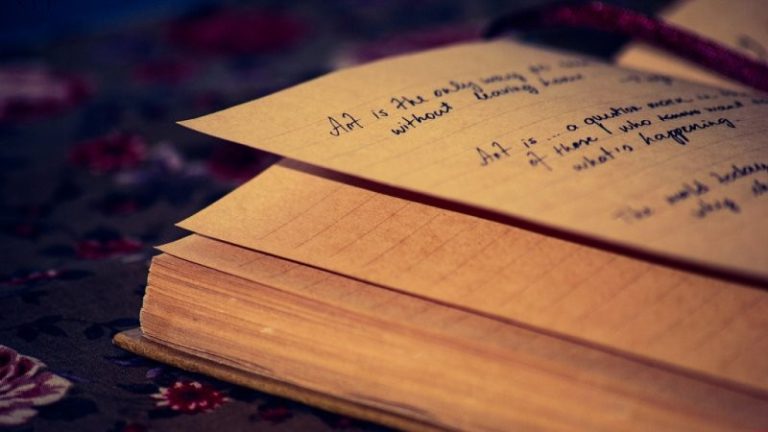 Art is the only way
without leaving home
Art is... a question mark in
of those who
what's happening.
The world today
why